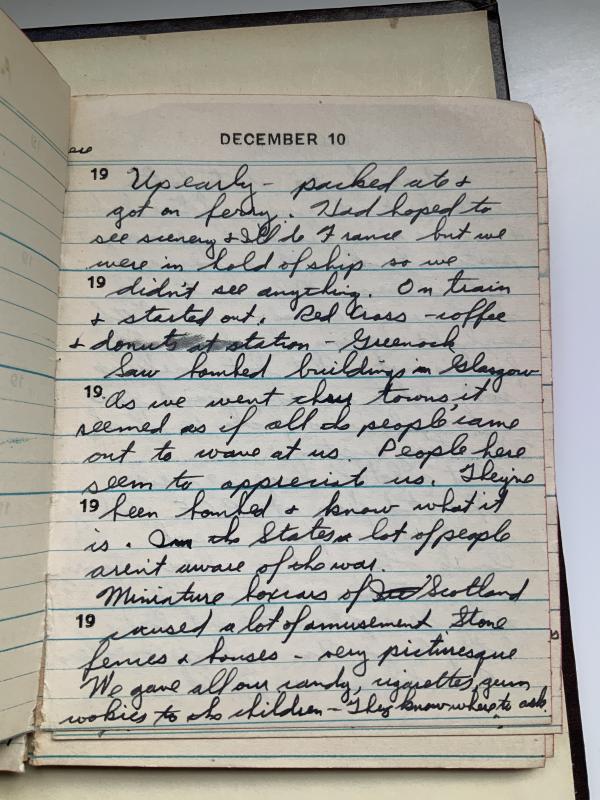 DECEMBER 10
19 Up early - packed ate &
got on ferry. Had hoped to
see scenery & France but we
were in hold of ship so we
19 didn't see anything. On train
& started out. Red Cross - coffee
& donuts at station - Greenock
Saw bombed buildings in Glasgow
19 As we went thru towns, it
seemed as if all do people came
out to wave at us. People here
seem to appreciate us. They've
19 been bombed & know what it
is. In the States a lot of people
aren't aware of the war.
Miniature boxcars of Scotland
19 caused a lot of amusement Stone
fences & houses - very picturesque
We gave all our candy, cigarettes, gum
cookies to the children - They know where to ask.